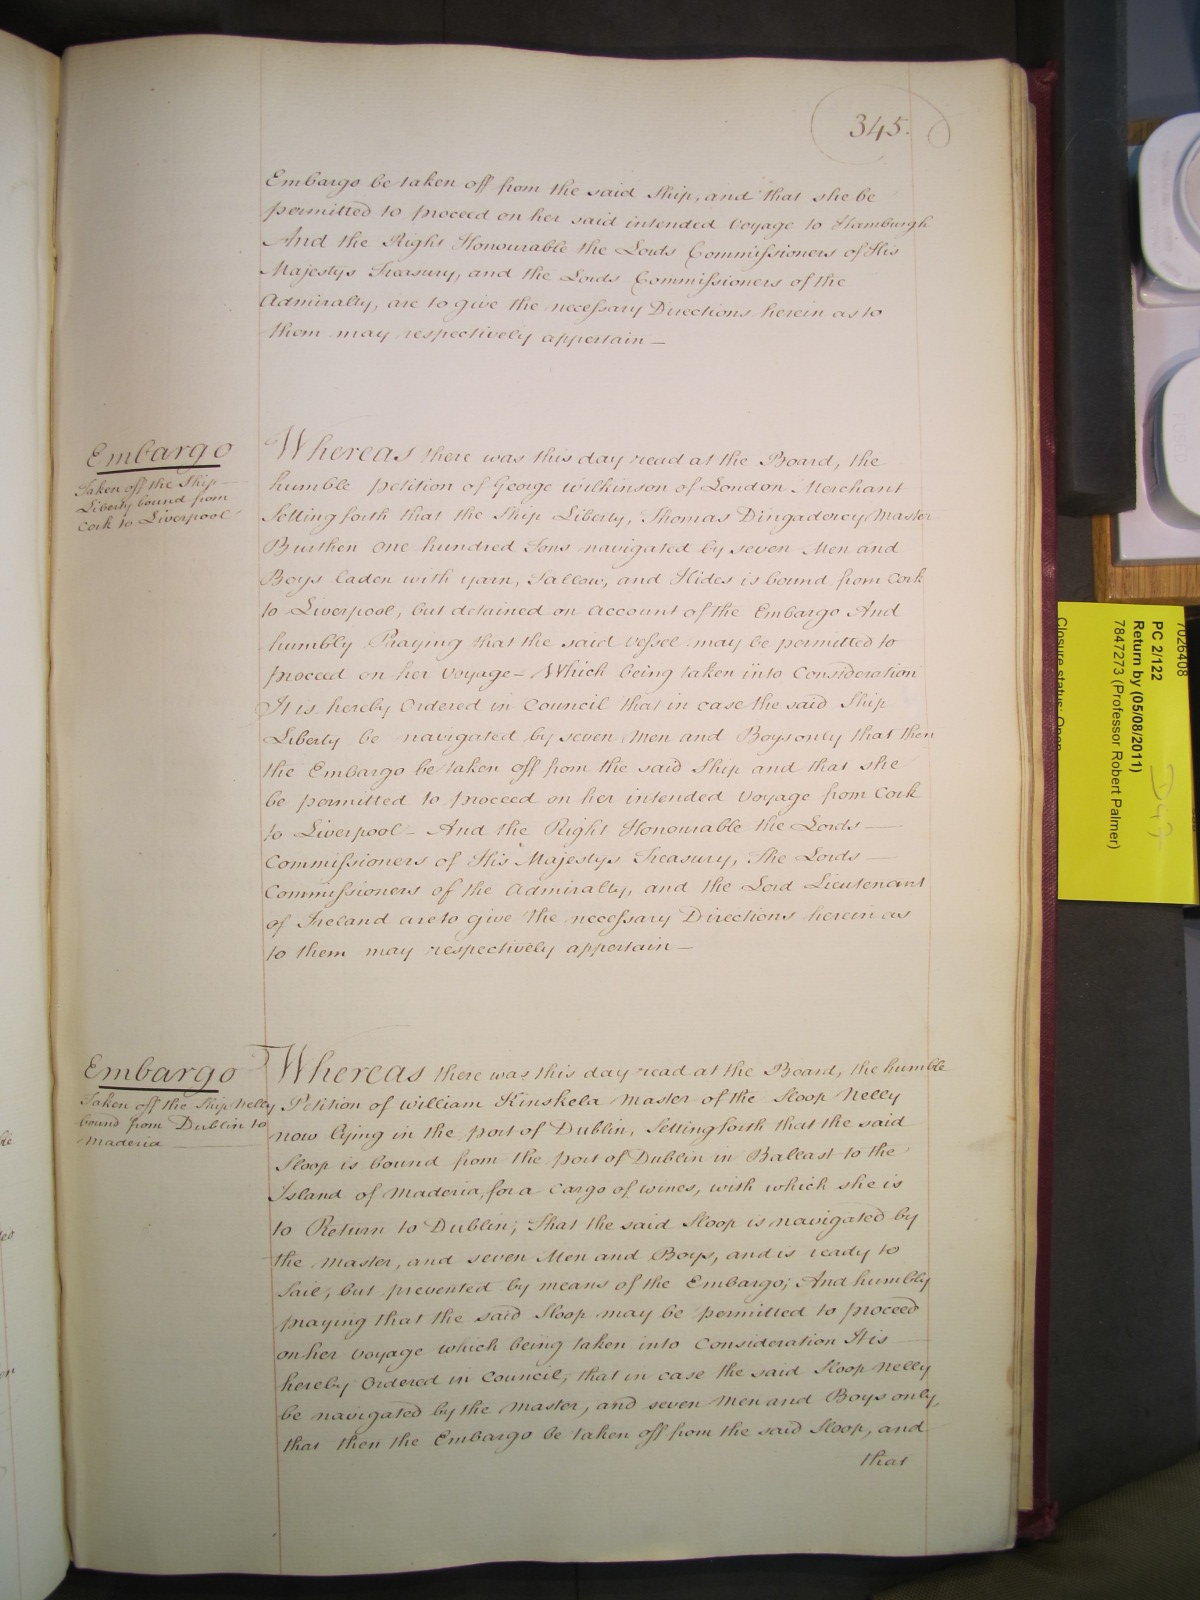 345.
Embargo be taken off from the said Ship, and that she be
permitted to proceed on her said intended Voyage to Hamburgh
And the Right Honourable the Lords Commissioners of His
Majestys Treasury, and the Lords Commissioners of the
Admiralty, are to give the necessary Directions herein as to
them may respectively appertain —
Embargo
Taken off the Ship
Liberty bound from
Cork to Liverpool
Whereas there was this day read at the Board, the
humble petition of George Wilkinson of London Merchant
Setting forth that the Ship Liberty, Thomas Master
Burthen one hundred Tons navigated by seven Men and
Boys laden with yarn, Tallow, and Hides is bound from Cork
to Liverpool, but detained on account of the Embargo And
humbly Praying that the said Vessel may be permitted to
proceed on her Voyage — Which being taken into Consideration
It is hereby Ordered in Council that in case the said Ship
Liberty be navigated by seven Men and Boys only that then
the Embargo be taken off from the said Ship and that she
be permitted to proceed on her intended Voyage from Cork
to Liverpool — And the Right Honourable the Lords —
Commissioners of His Majestys Treasury, The Lords —
Commissioners of the Admiralty, and the Lord Lieutenant
of Ireland are to give the necessary Directions herein as
to them may respectively appertain —
Embargo
Taken off the Ship Nelly
bound from Dublin to
Maderia
Whereas there was this day read at the Board, the humble
Petition of William Kinskela Master of the Sloop Nelly
now lying in the port of Dublin, Setting forth that the said
Sloop is bound from the port of Dublin in Ballast to the
Island of Maderia, for a Cargo of Wines, with which she is
to Return to Dublin; That the said Sloop is navigated by
the Master, and seven Men and Boys, and is ready to
Sail, but prevented by means of the Embargo; And humbly
praying that the said Sloop may be permitted to proceed
on her Voyage which being taken into Consideration It is
hereby Ordered in Council, that in case the said Sloop Nelly
be navigated by the Master, and seven Men and Boys only,
that then the Embargo be taken off from the said Sloop, and
that
7026408
PC 2/122
Return by (05/08/2011)
7847273 (Professor Robert Palmer)
Closure status: Open